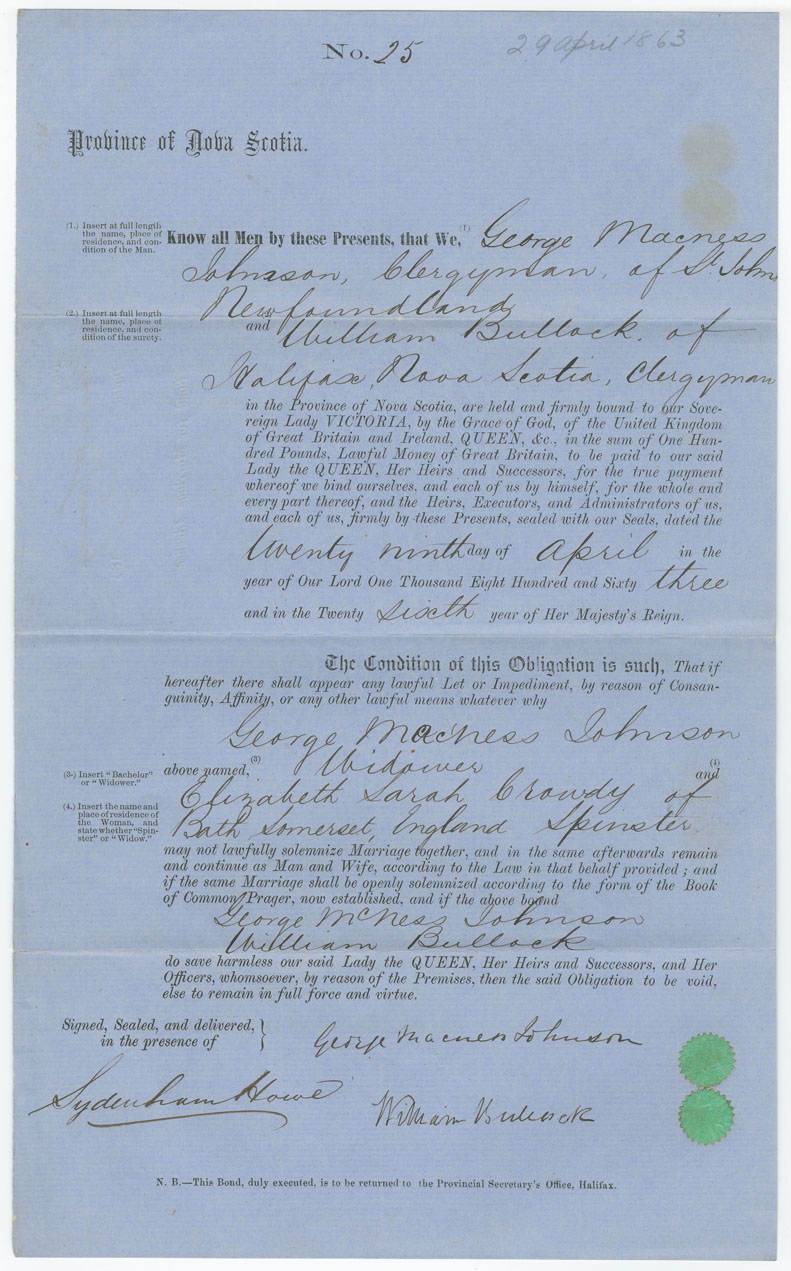 No. 25
29 April 1863
Province of Nova Scotia.
(1.) Insert at full length
the name, place of
residence, and con-
dition of the Man.
Know all Men by these Presents, that We, (1) George Macness
Johnson, Clergyman, of St. Johns
Newfoundland
(2.) Insert at full length
the name, place of
residence, and con-
dition of the surety.
and William Bullock. of
Halifax, Nova Scotia, Clergyman
in the Province of Nova Scotia, are held and firmly bound to our Sove-
reign Lady VICTORIA, by the Grace of God, of the United Kingdom
of Great Britain and Ireland, QUEEN, &c., in the sum of One Hun-
dred Pounds, Lawful Money of Great Britain, to be paid to our said
Lady the QUEEN, Her Heirs and Successors, for the true payment
whereof we bind ourselves, and each of us by himself, for the whole and
every part thereof, and the Heirs, Executors, and Administrators of us,
and each of us, firmly by these Presents, sealed with our Seals, dated the
twenty ninth day of April in the
year of Our Lord One Thousand Eight Hundred and Sixty three
and in the Twenty sixth year of Her Majesty's Reign.
The Condition of this Obligation is such, That if
hereafter there shall appear any lawful Let or Impediment, by reason of Consan-
guinity, Affinity, or any other lawful means whatever why
George MacNess Johnson
(3.) Insert "Bachelor"
or "Widower."
above named, (3) Widower and (4)
(4.) Insert the name and
place of residence of
the Woman, and
state whether "Spin-
ster" or "Widow."
Elizabeth Sarah Crowdy of
Bath Somerset, England Spinster
may not lawfully solemnize Marriage together, and in the same afterwards remain
and continue as Man and Wife, according to the Law in that behalf provided ; and
if the same Marriage shall be openly solemnized according to the form of the Book
of Common Prager, now established, and if the above bound
George McNess Johnson
William Bullock
do save harmless our said Lady the QUEEN, Her Heirs and Successors, and Her
Officers, whomsoever, by reason of the Premises, then the said Obligation to be void,
else to remain in full force and virtue.
Signed, Sealed, and delivered,
in the presence of
George Macness Johnson
Sydenham Howe
William Bullock
N. B.—This Bond, duly executed, is to be returned to the Provincial Secretary's Office, Halifax.